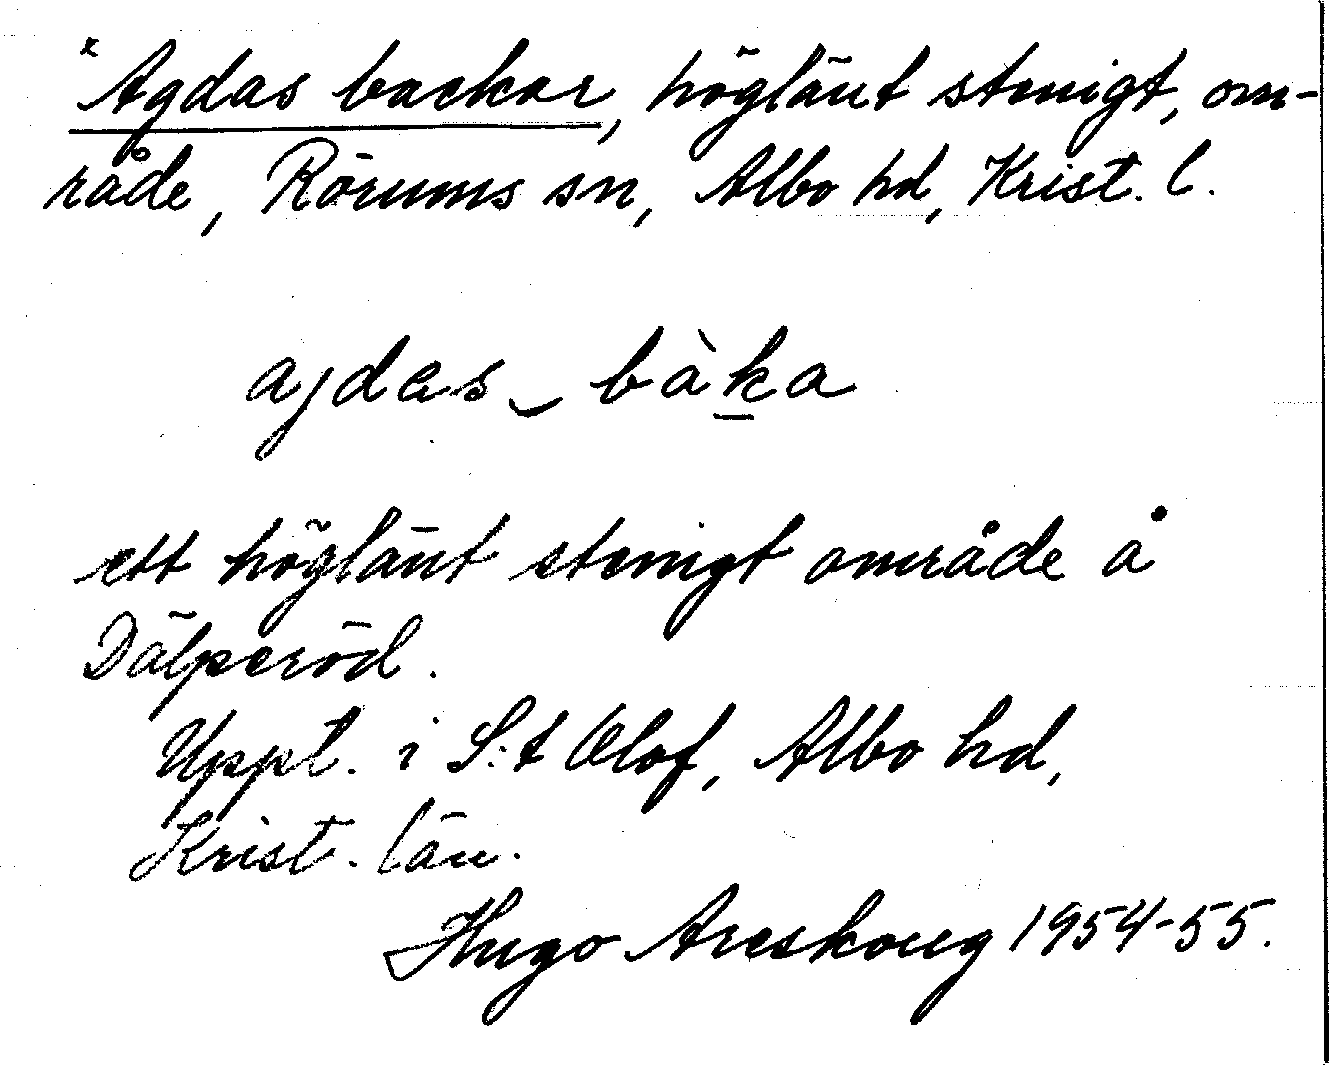 *Agdas backar, höglänt stenigt, om-
råde, Rörums sn, Albo hd, Krist. l.
ajdas‿bàka
ett höglänt stenigt område å
Dälperöd.
Uppl. i S:t Olof, Albo hd,
Krist. län.
Hugo Areskoug 1954-55.